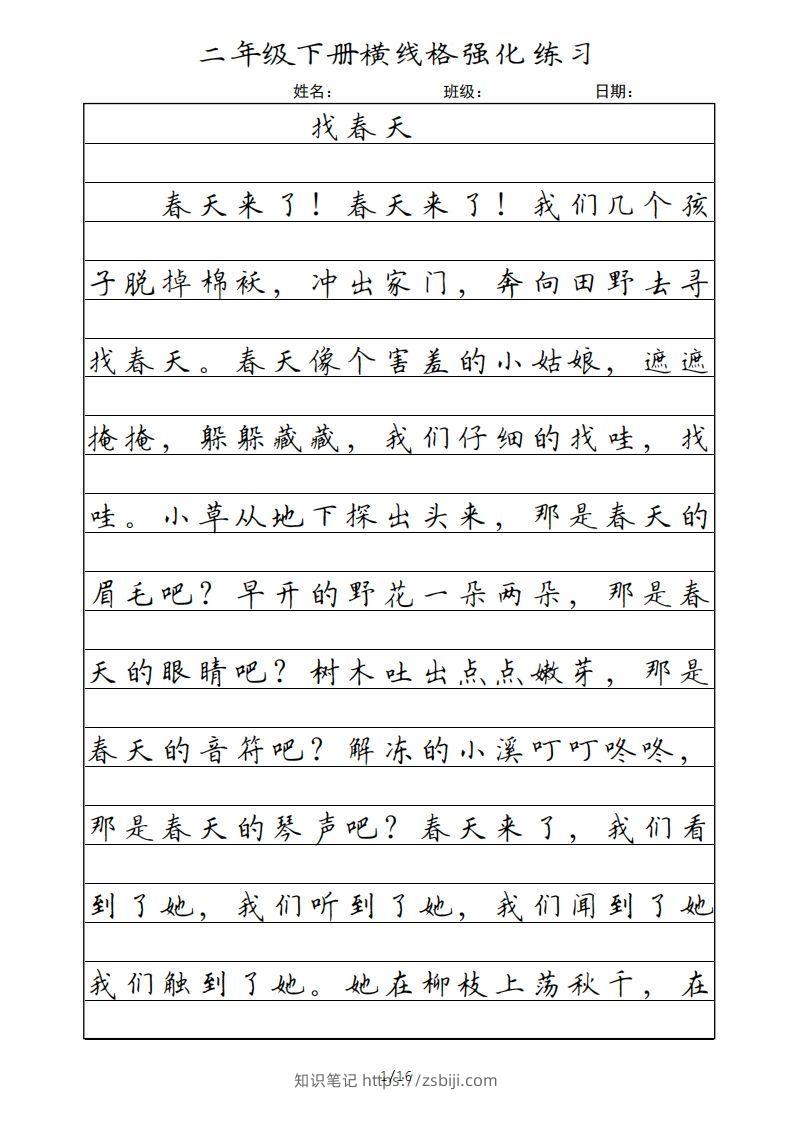 二年级下册横线格强化练习
姓名： 班级： 日期：
找春天
春天来了！春天来了！我们几个孩
子脱掉棉袄，冲出家门，奔向田野去寻
找春天。春天像个害羞的小姑娘，遮遮
掩掩，躲躲藏藏，我们仔细的找哇，找
哇。小草从地下探出头来，那是春天的
眉毛吧？早开的野花一朵两朵，那是春
天的眼睛吧？树木吐出点点嫩芽，那是
春天的音符吧？解冻的小溪叮叮咚咚，
那是春天的琴声吧？春天来了，我们看
到了她，我们听到了她，我们闻到了她
我们触到了她。她在柳枝上荡秋千，在
1/16
知识笔记 https://zsbiji.com